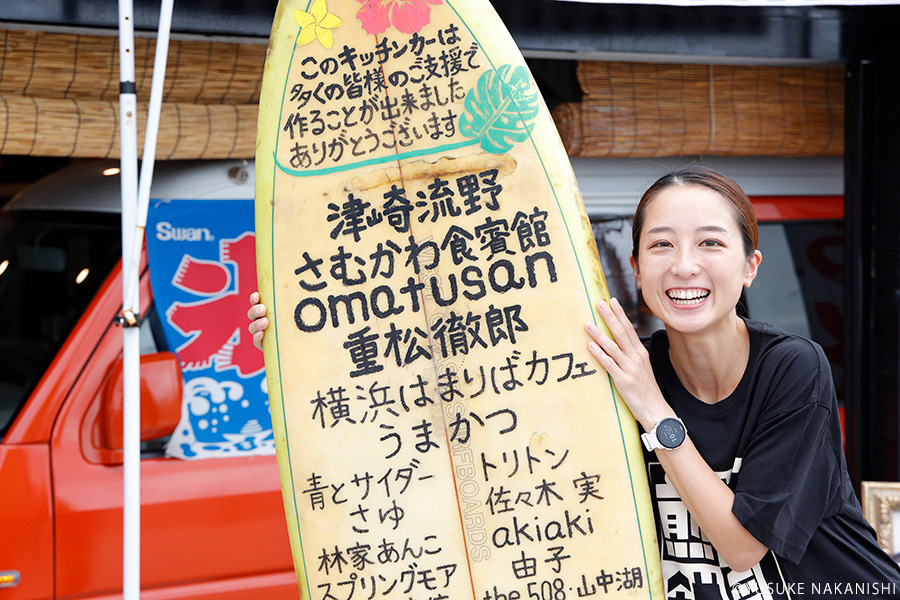 このキッチンカーは
多くの皆様のご支援で
作ることが出来ました
ありがとうございます
津崎流野
さむかわ食賓館
omatusan
重松徹郎
横浜はまりばカフェ
うまかつ
青とサイダー
さゆ
林家あんこ
スプリングモア
トリトン
佐々木 実
akiaki
由子
the 508・山中湖
SURFBOARDS
Swan
氷
YOSUKE NAKANISHI